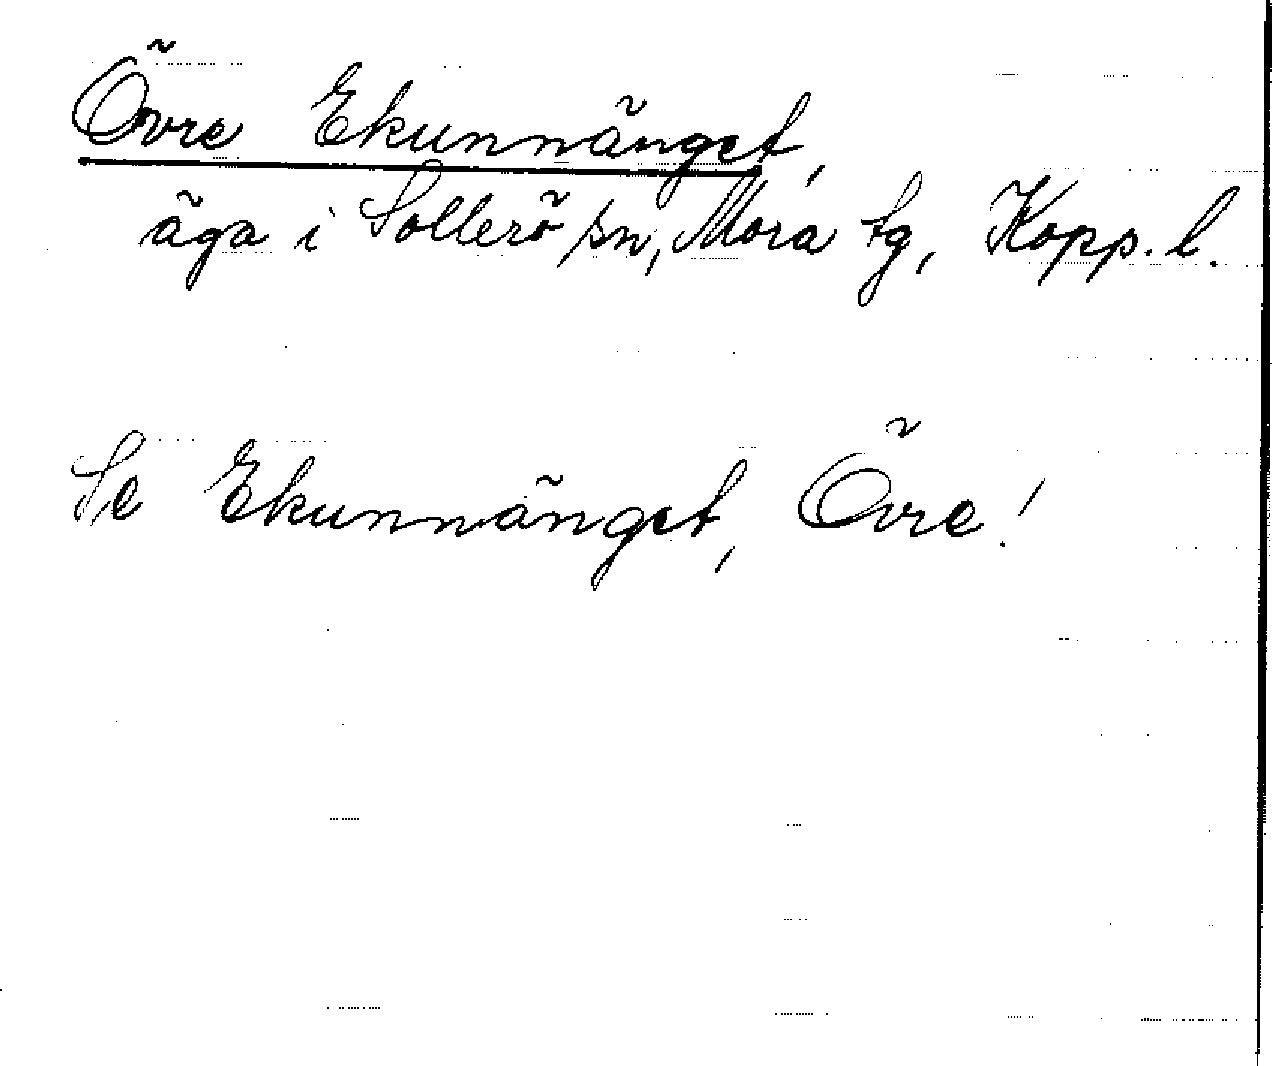 Övre Ekunnänget,
äga i Sollerö sn, Mora tg, Kopp. l.
Se Ekunnänget, Övre!